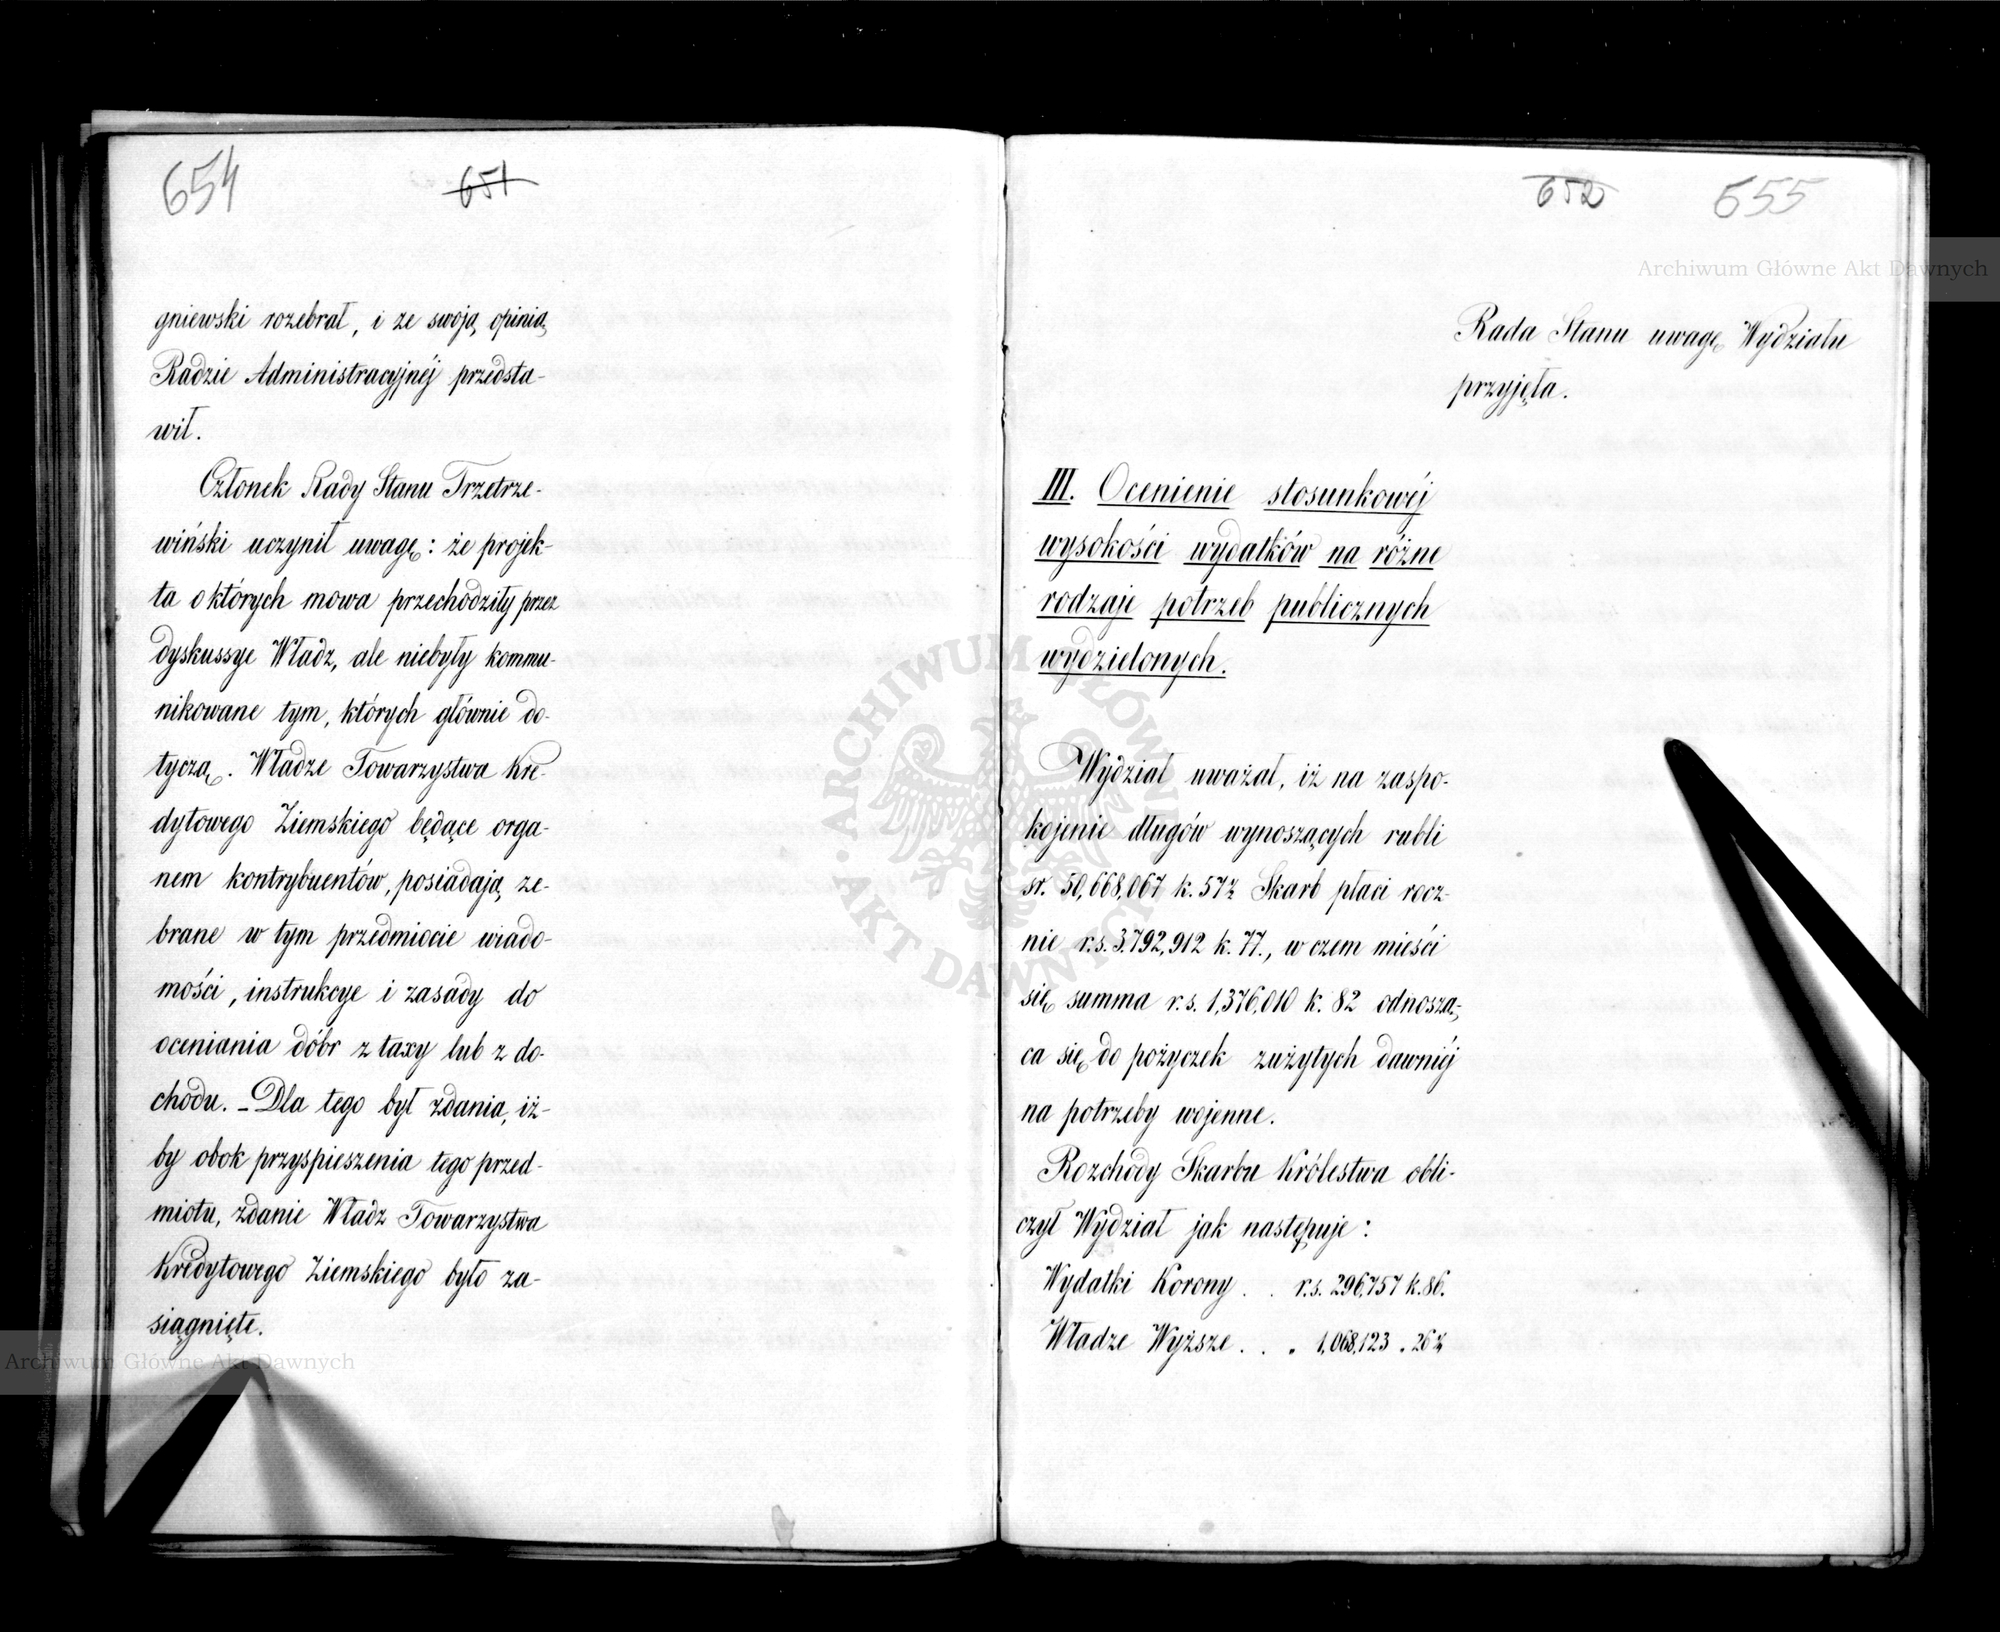 654
651
gniewski rozebrał, i ze swoją opinią
Radzie Administracyjnéj przedsta-
wił.
Członek Rady Stanu Trzetrze-
wiński uczynił uwagę: że projek-
ta o których mowa przechodziły przez
dyskussye Władz, ale niebyły kommu-
nikowane tym, których głównie do-
tyczą. Władze Towarzystwa Kre-
dytowego Ziemskiego będące orga-
nem kontrybuentów, posiadają ze-
brane w tym przedmiocie wiado-
mości, instrukcye i zasady do
oceniania dóbr z taxy lub z do-
chodu. – Dla tego był zdania, iż-
by obok przyspieszenia tego przed-
miotu, zdanie Władz Towarzystwa
Kredytowego Ziemskiego było za-
siągnięte.
652
655
Rada Stanu uwagę Wydziału
przyjęła.
III. Ocenienie stosunkowéj
wysokości wydatków na różne
rodzaje potrzeb publicznych
wydzielonych.
Wydział uważał, iż na zaspo-
kojenie długów wynoszących rubli
sr. 50,668,067 k. 57½ Skarb płaci rocz-
nie r.s. 3.792,912 k. 77., w czem mieści
się summa r.s. 1,376,010 k. 82 odnoszą-
ca się do pożyczek zużytych dawniéj
na potrzeby wojenne.
Rozchody Skarbu Królestwa obli-
czył Wydział jak następuje:
Wydatki Korony . . r.s. 296,757 k. 86.
Władze Wyższe . . „ 1,068,123 „ 26½
Archiwum Główne Akt Dawnych
Archiwum Główne Akt Dawnych
ARCHIWUM GŁÓWNE AKT DAWNYCH